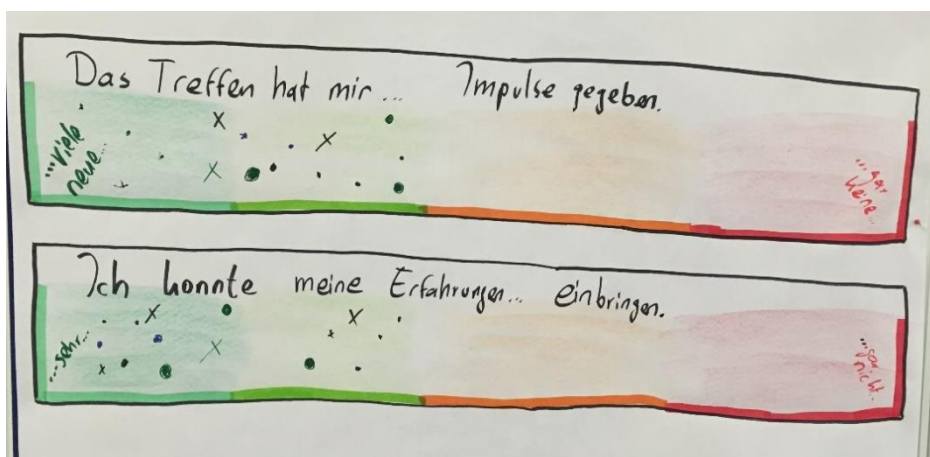 Das Treffen hat mir... Impulse gegeben.
...viele
neue...
...gar
keine...
Ich konnte meine Erfahrungen... einbringen.
...sehr...
...gar
nicht.